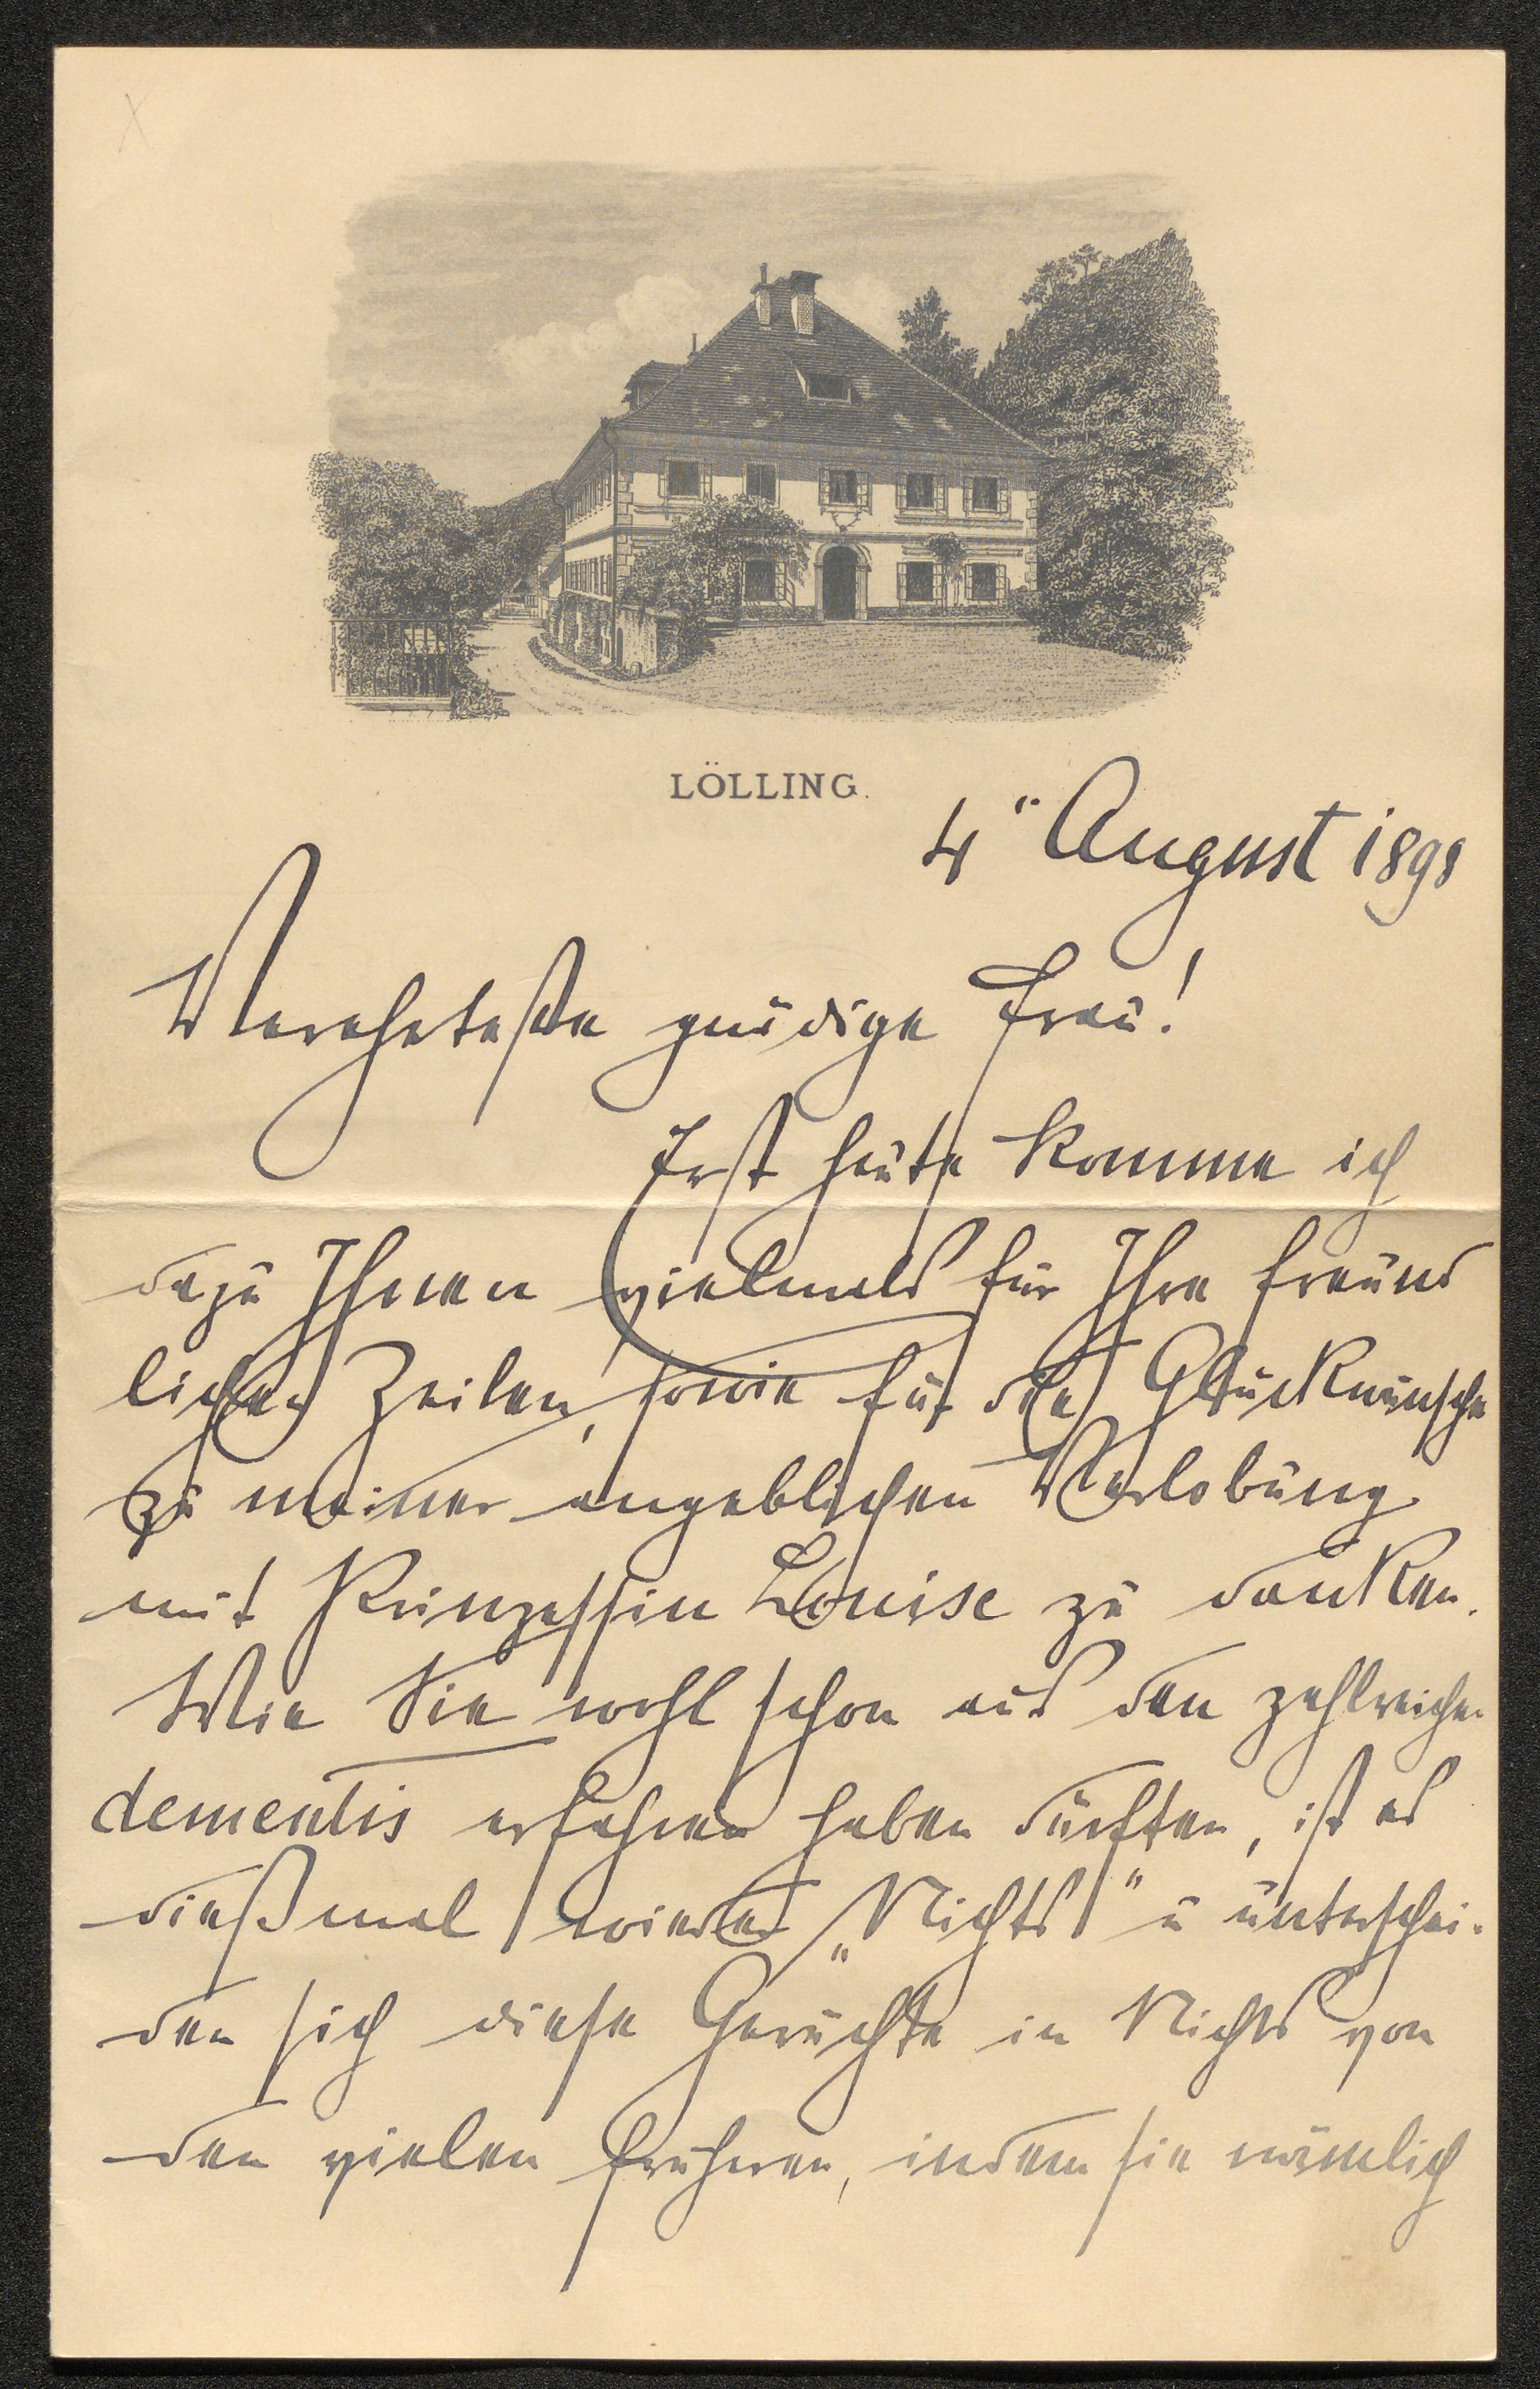 LÖLLING.
4" August 1898
Verehrteste gnädige Frau!
Erst heute komme ich
dazu Ihnen vielmals für Ihre freund
lichen Zeilen, sowie für die Glückwünsche
zu meiner angeblichen Verlobung
mit Prinzessin Louise zu danken.
Wie Sie wohl schon aus den zahlreichen
dementis erfahren haben dürften, ist es
dießmal wieder „Nichts" u unterschei-
den sich diese Gerüchte in Nichts von
den vielen früheren, indem sie nämlich